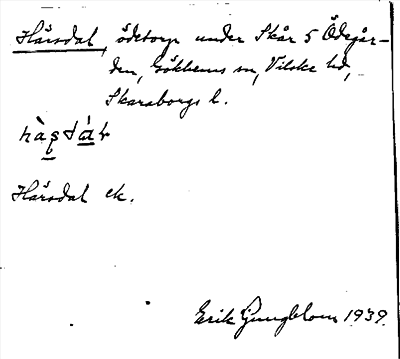 Hårsdal, ödetorp under Skår 5 Ödegår-
den, Gökhems sn, Vilske hd,
Skaraborgs l.
Hårsdal ek.
Erik Ljungblom 1939.